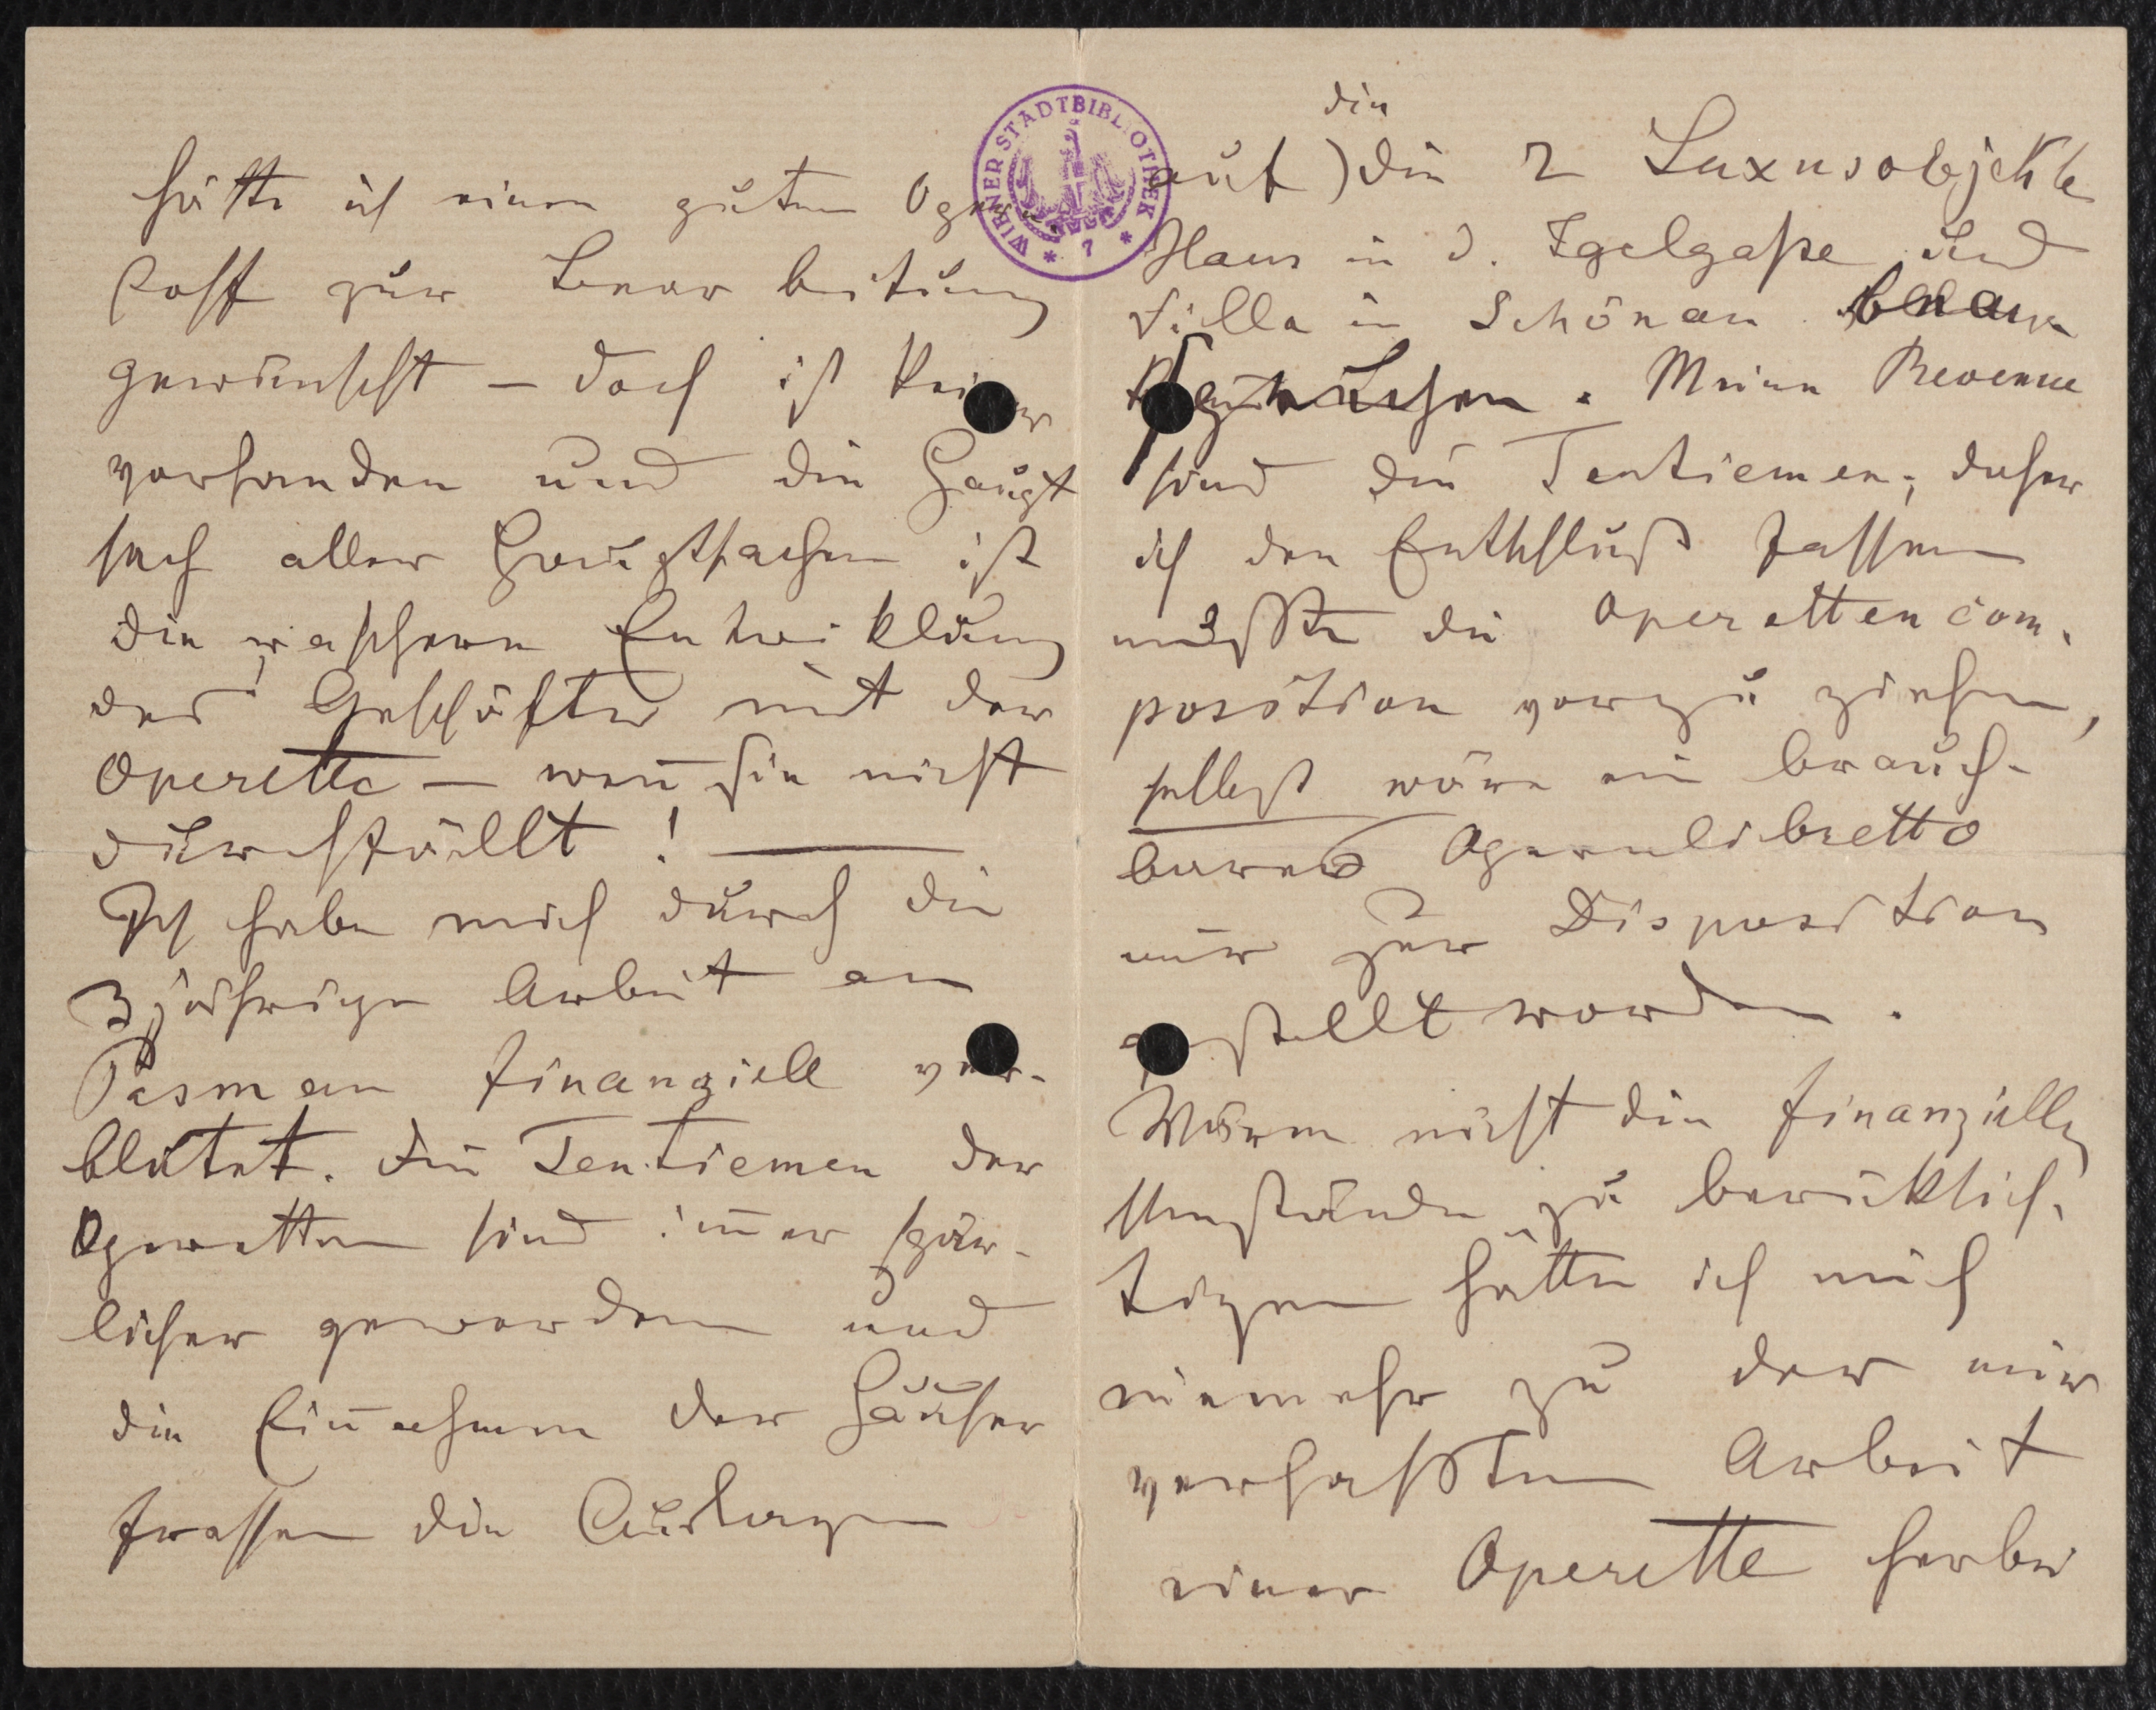 hätte ich einen guten Opern
stoff zur Bearbeitung
gewünscht – doch ist keiner
vorhanden und die Haupt
sach aller Hauptsachen ist
die raschere Entwicklung
des Geschäftes mit der
Operette – weñ sie nicht
durchfällt! —
Ich habe mich durch die
3 jährige Arbeit an
Pasman finanziell ver-
blutet. Die Tentiemen der
Operetten sind im̄er spär-
licher geworden und
die Eiñahmen der Häuser
frassen die Auslagen
WIENER STADTBIBLIOTHEK
* 7 *
die
auf) die 2 Luxusobjekte
Haus in d. Igelgaße und
Villa in Schönau
. Meine Revenue
sind die Tentiemen; daher
ich den Entschluß fassen
mußte die Operettencom-
position vorzuziehen,
selbst wäre ein brauch-
bares Opernlibretto
mir zur Disposition
gestellt worden.
Wären nicht die finanzielle
Umstände zu berücksich-
tigen hätte ich mich
niemehr zu der mir
verhaßten Arbeit
einer Operette herbei